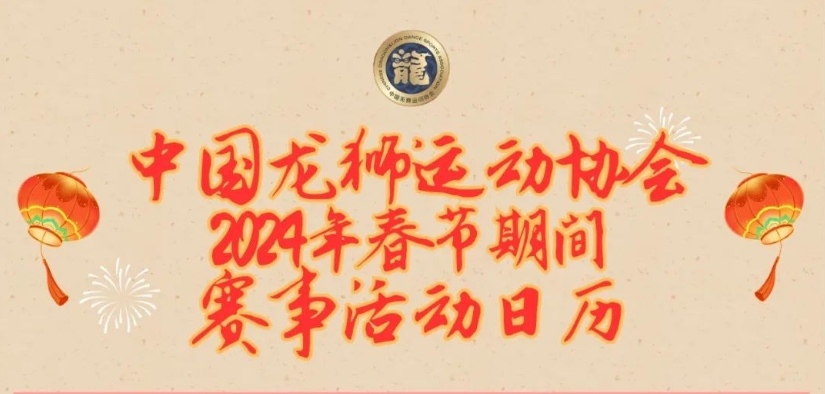 龍
中国龙狮运动协会
2024年春节期间
赛事活动日历